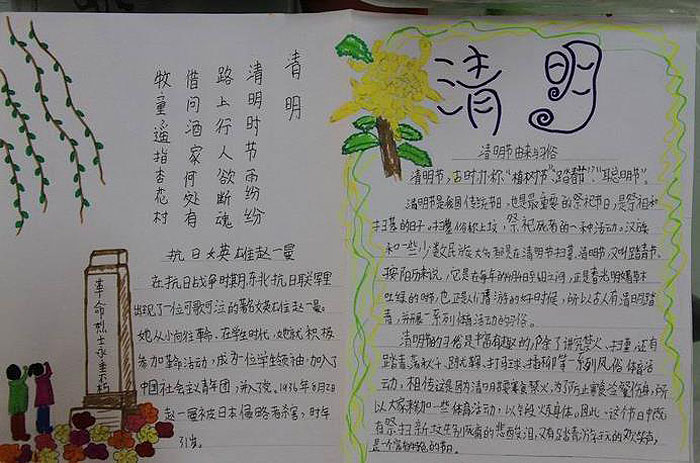 清明
清明时节雨纷纷
路上行人欲断魂
借问酒家何处有
牧童遥指杏花村
抗日女英雄赵一曼
在抗日战争时期,东北抗日联军里
出现了一位可歌可泣的著名女英雄赵一曼。
她从小向往革命。在学生时代,她就积极
参加革命活动,成为一位学生领袖,加入了
中国社会主义青年团,
1936年8月2日
赵一曼被日本侵略者杀害,时年
31岁。
革命烈士永垂不朽
清明
清明节由来与习俗
清明节,古时亦称“植树节”“踏青节”“聪明节”。
清明节是我国传统节日,也是最重要的祭祀节日,是祭祖和
扫墓的日子。扫墓俗称上坟,祭祀死者的一种活动。汉族
和一些少数民族大多都是在清明节扫墓。清明节,又叫踏青节,
按阳历来说,它是在每年的4月4日至6日之间,正是春光明媚草木
吐绿的时节,也正是人们春游的好时候,所以古人有清明踏
青,并开展一系列体育活动的习俗。
清明节的习俗是丰富有趣的,除了讲究禁火、扫墓,还有
踏青、荡秋千、蹴鞠、打马球、插柳等一系列风俗体育活
动,相传这是因为清明节要寒食禁火,为了防止寒食冷餐伤身,所
以大家来参加一些体育活动,以锻炼身体。因此,这个节日中既
有祭扫新坟生别死离的悲酸泪,又有踏青游玩的欢笑声,
是一个富有特色的节日。